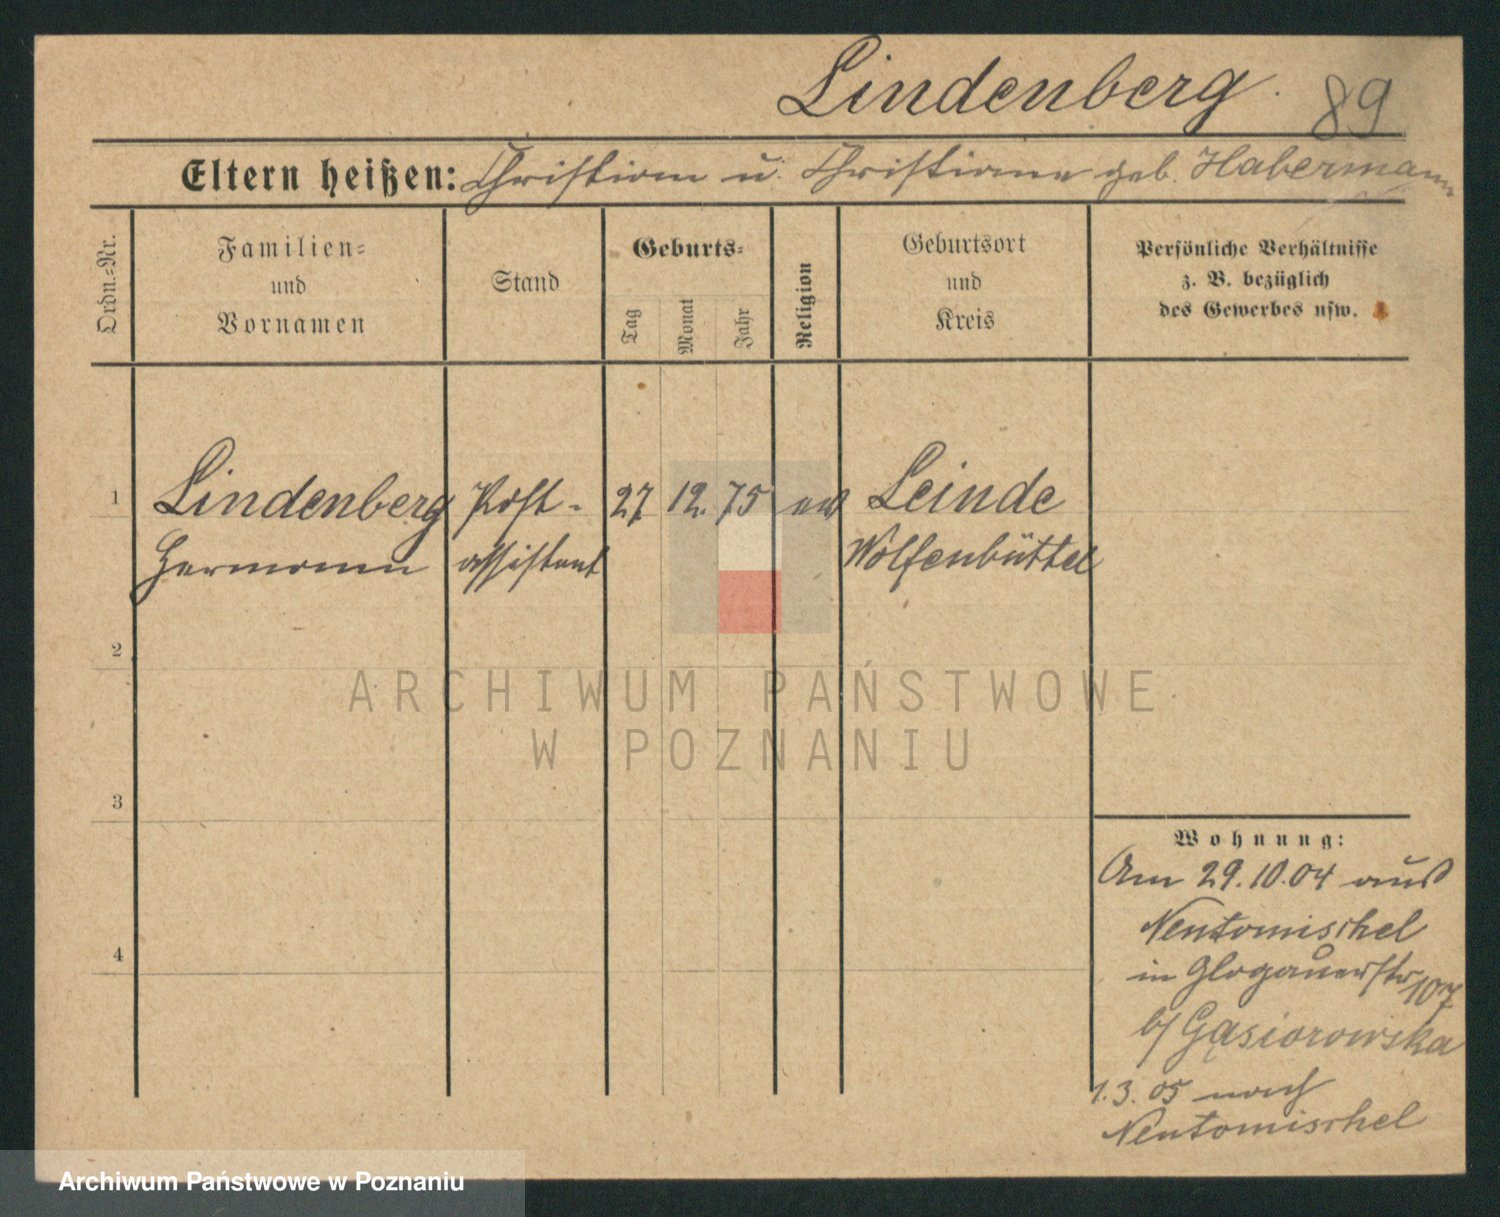 Lindenberg. 89
Eltern heißen: Christian u. Christiane geb. Habermann
Ordn.=Nr.
Familien=
und
Vornamen
Stand
Geburts=
Tag
Monat
Jahr
Religion
Geburtsort
und
Kreis
Persönliche Verhältnisse
z. B. bezüglich
des Gewerbes usw.
1 Lindenberg Post- 27 12. 75 ev Leinde
Hermann assistent Wolfenbüttel
2
3
4
Wohnung:
Am 29.10.04 aus
Neutomischel
in Glogauerstr 107
b/ Gąsiorowska
1.3.05 nach
Neutomischel
ARCHIWUM PAŃSTWOWE
W POZNANIU
Archiwum Państwowe w Poznaniu